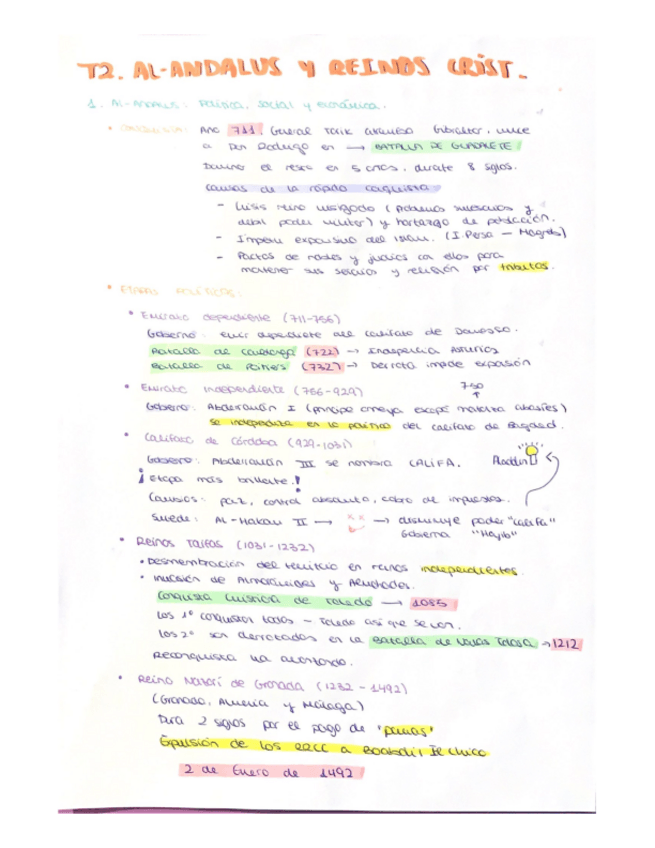 T2. AL-ANDALUS Y REINOS CRIST.
1. AL-ANDALUS: Política, social y económica.
• CONQUISTA: Año 711. General Tarik atraviesa Gibraltar, vence
a Don Rodrigo en → BATALLA DE GUADALETE
Domino el resto en 5 años, durante 8 siglos.
Causas de la rápida conquista
- Crisis reino visigodo (problemas sucesorios y
débil poder militar) y hartazgo de población.
- Ímpetu expansivo del Islam. (I. Persa — Magreb)
- Pactos de nobles y judíos con ellos para
mantener sus y religión por tributos.
• ETAPAS POLÍTICAS:
• Emirato dependiente (711-756)
Gobierno: emir dependiente del califato de Damasco.
Batalla de Covadonga (722) → Asturias
Batalla de Poitiers (732) → Derrota impide expansión
• Emirato independiente (756-929)
750
↑
Gobierno: Abderramán I (príncipe omeya escapó matanza abasíes)
se independiza en lo político del califato de Bagdad.
• Califato de Córdoba (929-1031)
Gobierno: Abderramán III se nombra CALIFA. Aladdin
¡Etapa más brillante!
: paz, control absoluto, cobro de impuestos.
Sucede: AL-Hakam II → → disminuye poder "califa"
Gobierna "Hayib"
• Reinos Taifas (1031-1232)
• Desmembración del territorio en reinos independientes.
• Invasión de Almorávides y Almohades.
Conquista cristiana de Toledo → 1085
Los 1º conquistan todos - Toledo así que se van.
Los 2º son derrotados en la Batalla de Navas Tolosa → 1212
Reconquista va avanzando.
• Reino Nazarí de Granada (1232-1492)
(Granada, Almería y Málaga)
Dura 2 siglos por el pago de "parias"
Expulsión de los RRCC a Boabdil, El Chico
2 de Enero de 1492